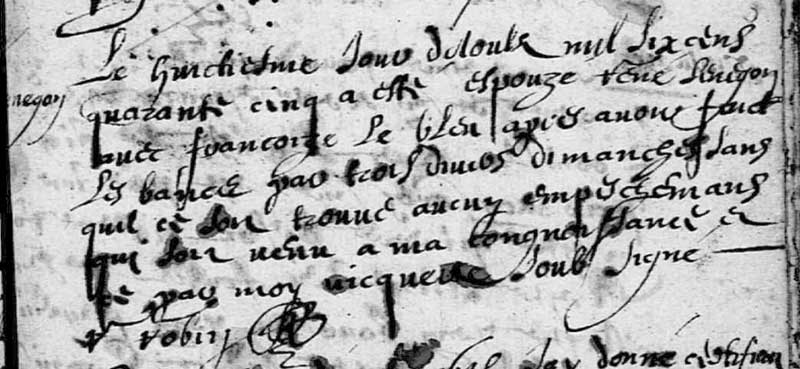 Le huictiesme Jour doctoubre mil sixcens
quarante cinq a esté espouze rene senegon
negon
avec francoize Le bleu apres avoir faict
Les bancz par trois divers dimanches sans
quil ce soit trouvé aucun empeschemans
qui soit venu a ma congnoissance et
ce par moy vicquere soub signe
robin
jay donne